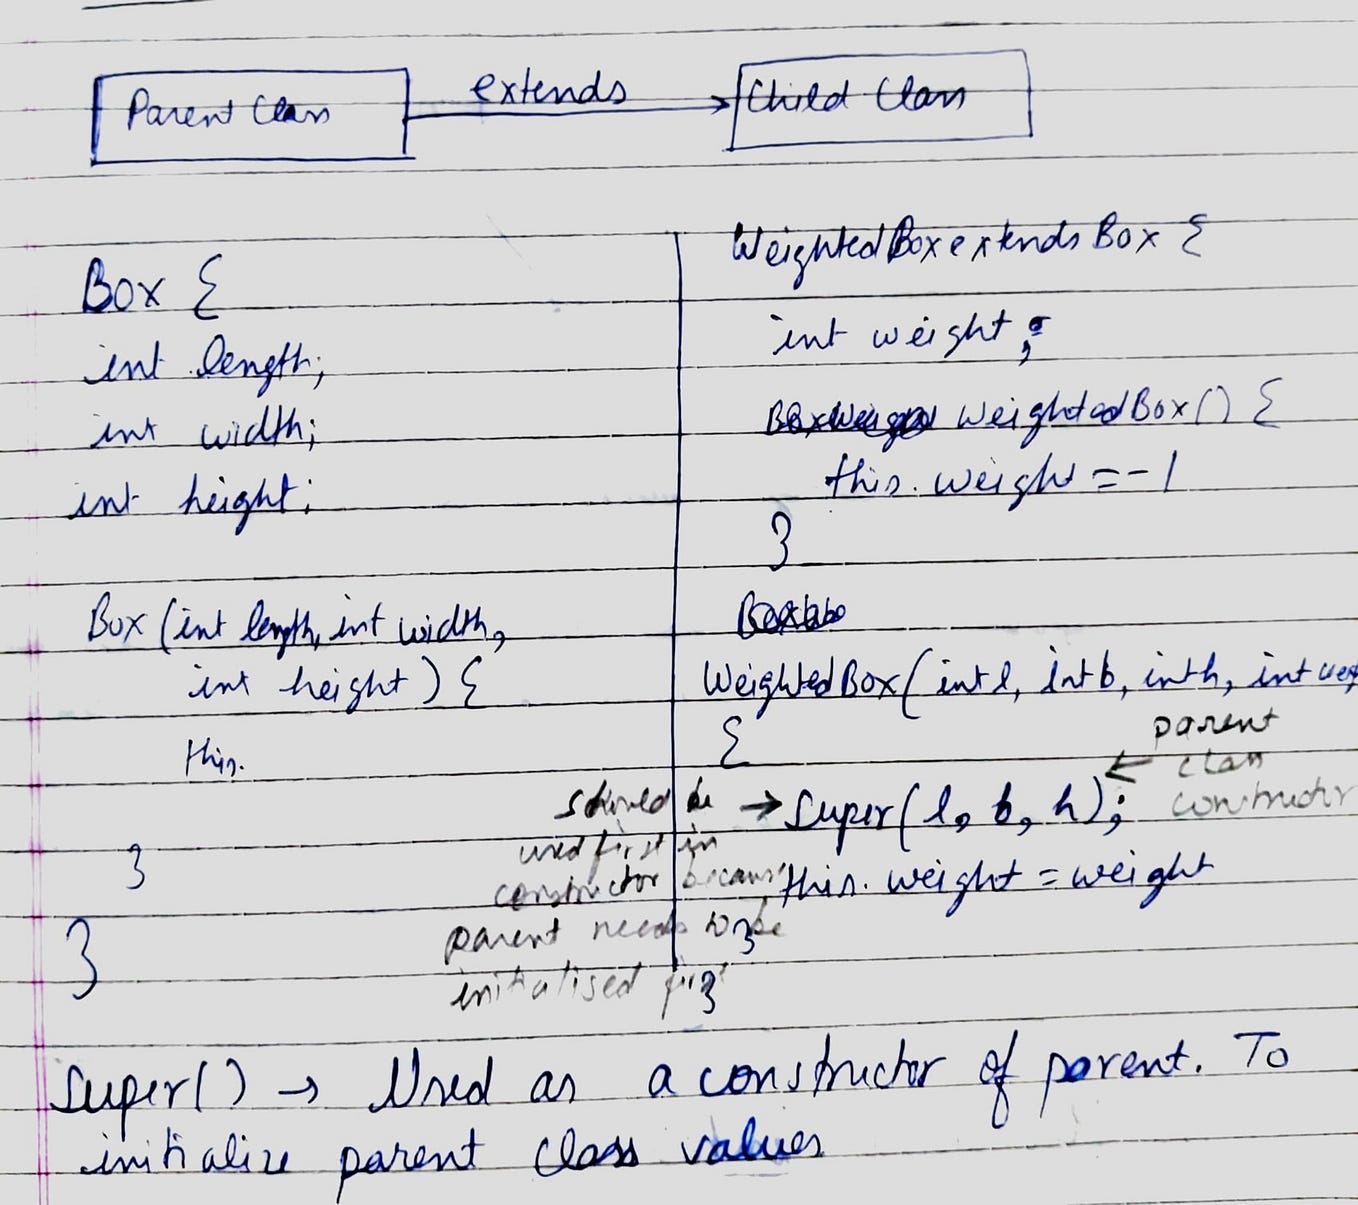 Parent Class extends Child Class
Box {
int length;
int width;
int height;
Box (int length, int width,
int height) {
this.
}
}
WeightedBox extends Box {
int weight;
WeightedBox() {
this.weight = -1
}
WeightedBox(int l, int b, int h, int
{
→ super(l, b, h); ← parent
class
constructor
this.weight = weight
}
}
should be
used first in
constructor because
parent needs to be
initialised first
Super() → Used as a constructor of parent. To
initialize parent class values